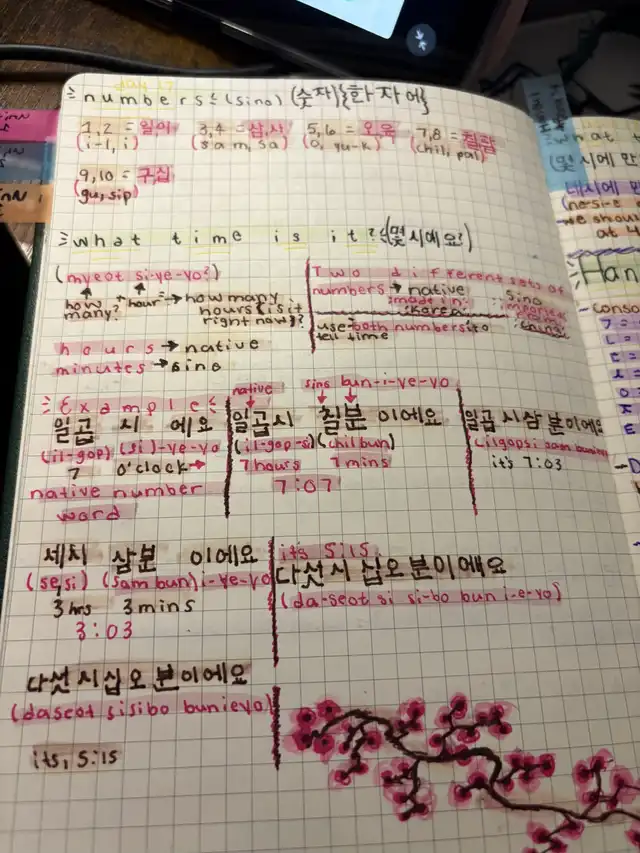 numbers (sino) (숫자){한자어}
1,2 = 일이
(i-l, i)
3,4 = 삼,사
(sam, sa)
5,6 = 오육
(o, yu-k)
7,8 = 칠팔
(chil, pal)
9,10 = 구십
(gu, sip)
What time is it? (몇시에요?)
(myeot si-ye-yo?)
how many? + hour → how many hours is it right now?
Two different sets of
numbers → native
made in
Korea
Sino
use both numbers to
tell time
hours → native
minutes → sino
Example
일곱 시 에요
(il-gop) (si)-ye-yo
7 o'clock →
native number
word
native
sino bun-i-ye-yo
일곱시 칠분 이에요
(il-gop-si)(chilbun)
7 hours 7 mins
7:07
일곱시삼분이에요
(ilgopsi sam bunieyo
it's 7:03
세시 삼분 이에요
(se,si) (sam bun) i-ye-yo
3 hrs 3 mins
3:03
its 5:15
다섯시 십오분이에요
(da-seot si si-bo bun i-e-yo)
다섯시십오분이에요
(daseot sisibo bunieyo)
its, 5:15
what t
(몇시에
네시에
(ne-si-e
we shou
at 4
Han
- conso